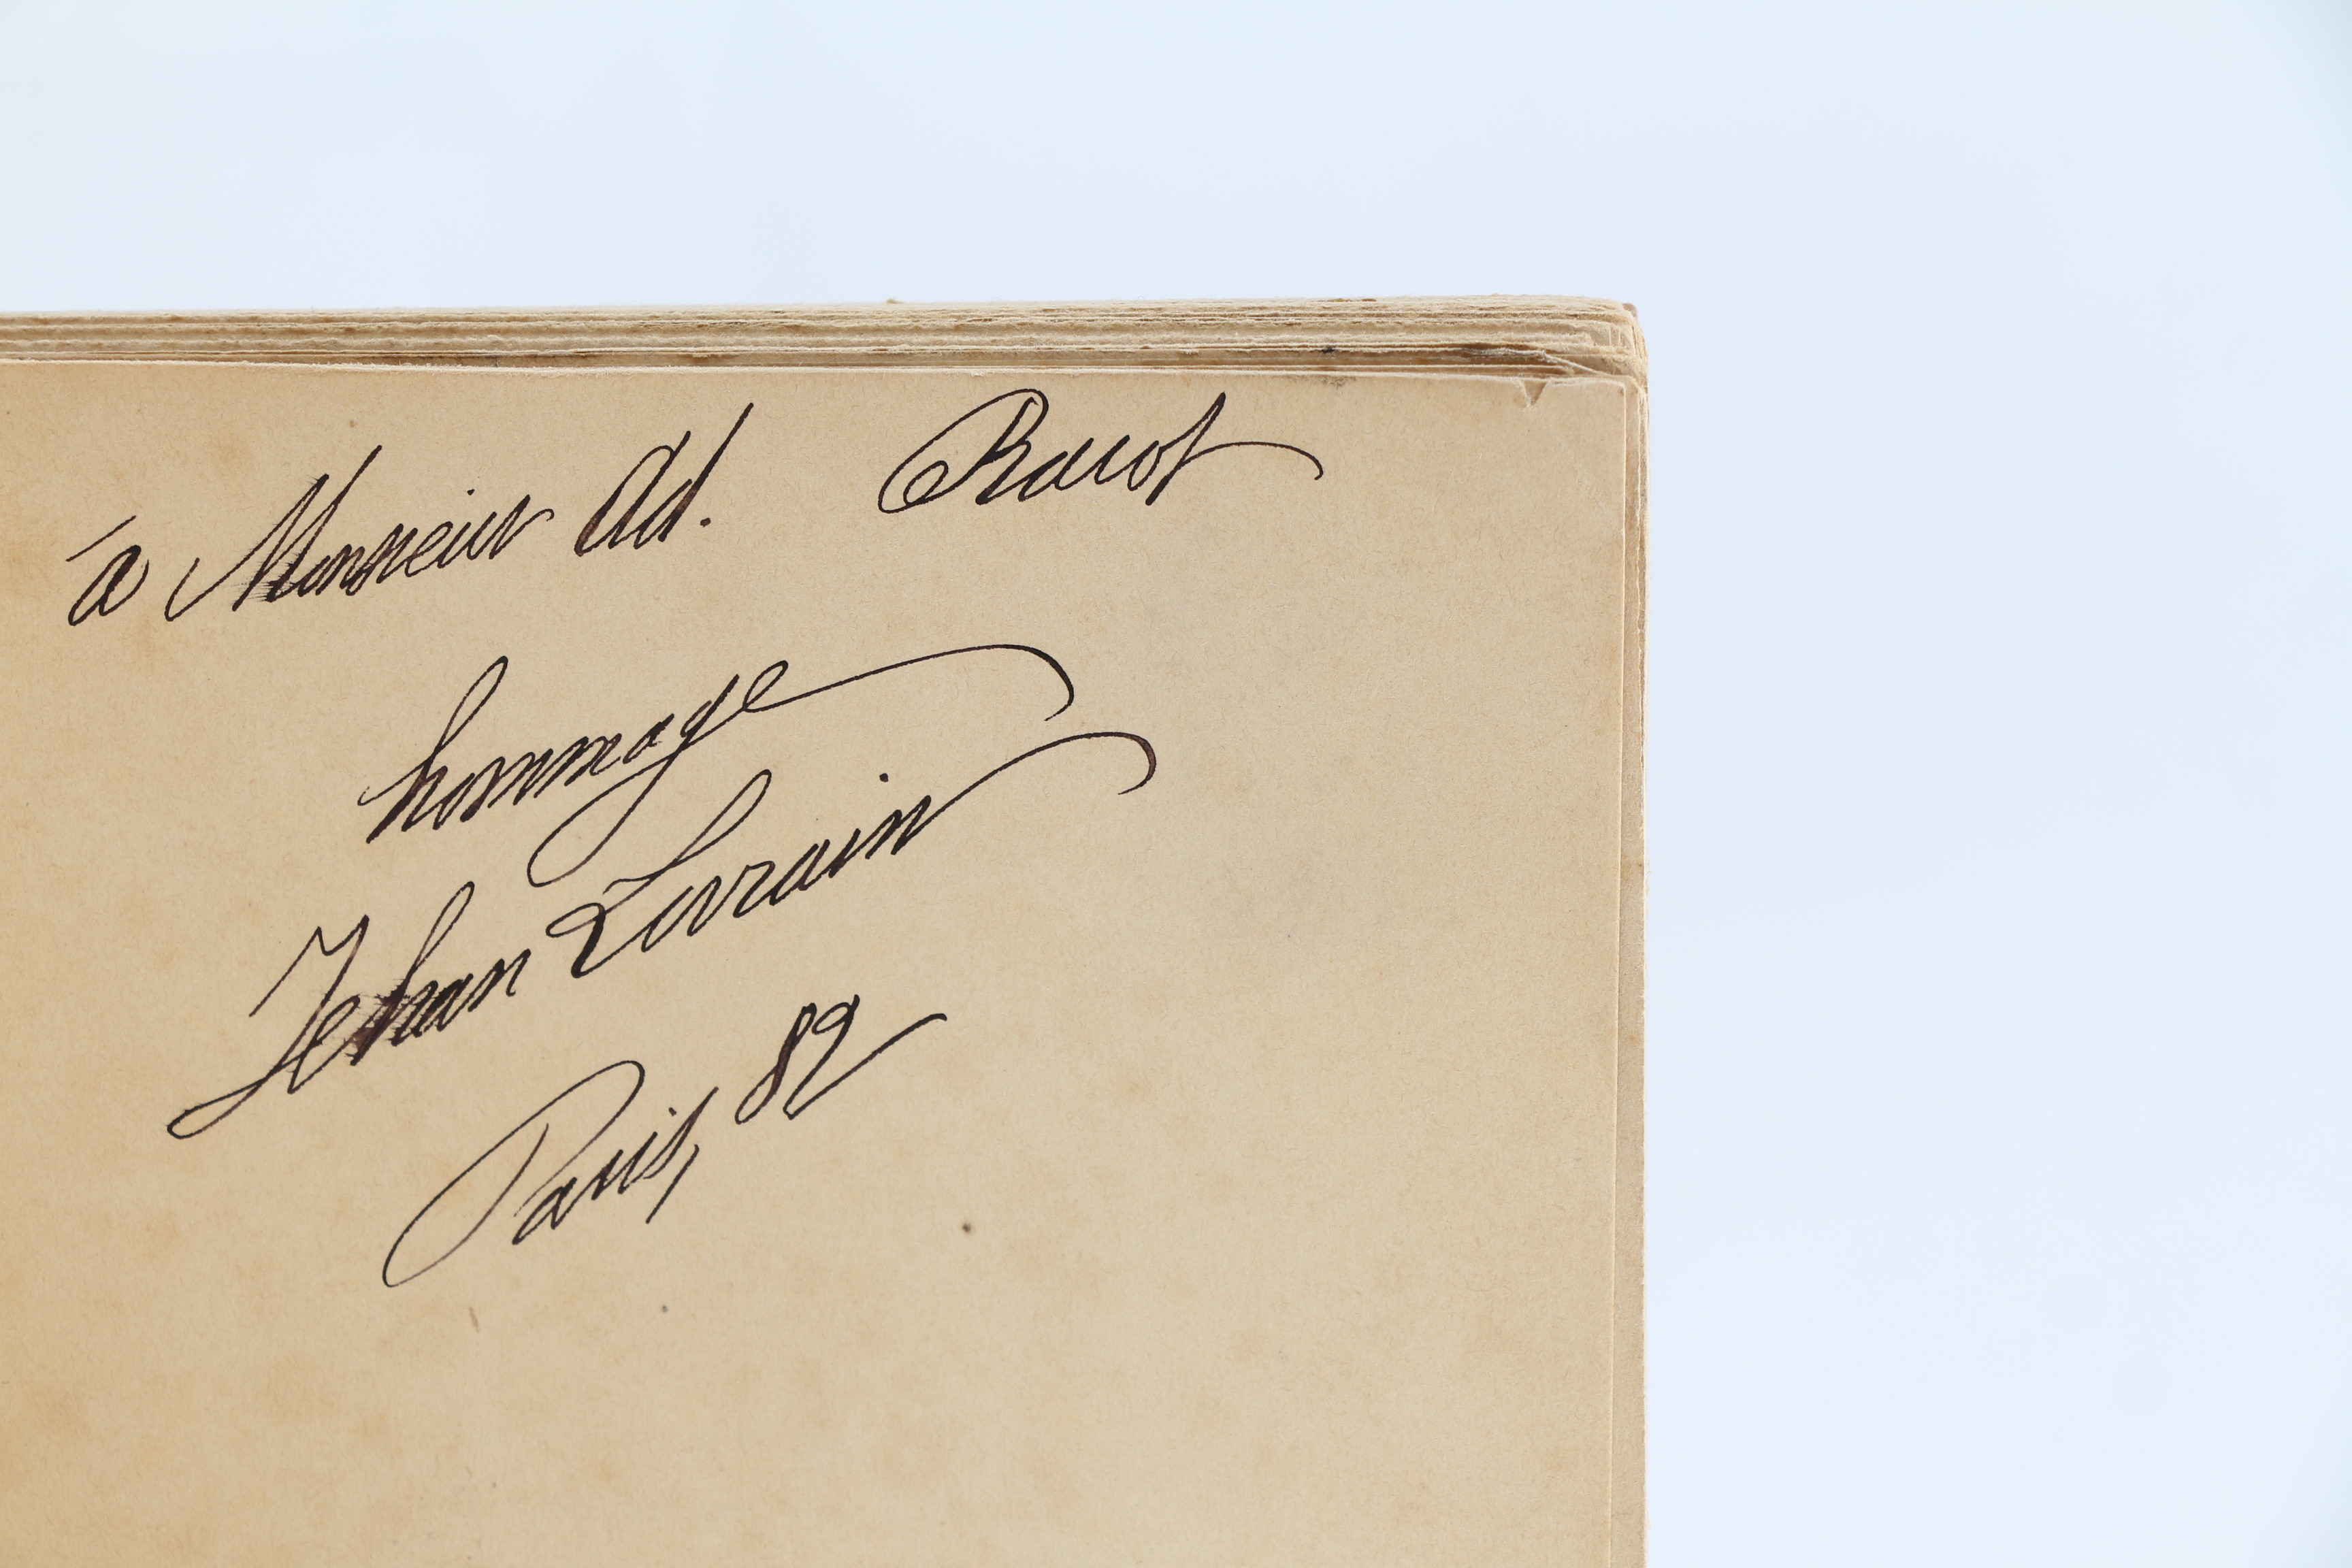 à Monsieur Ad. Racot
hommage
Jehan Lorrain
Paris, 82